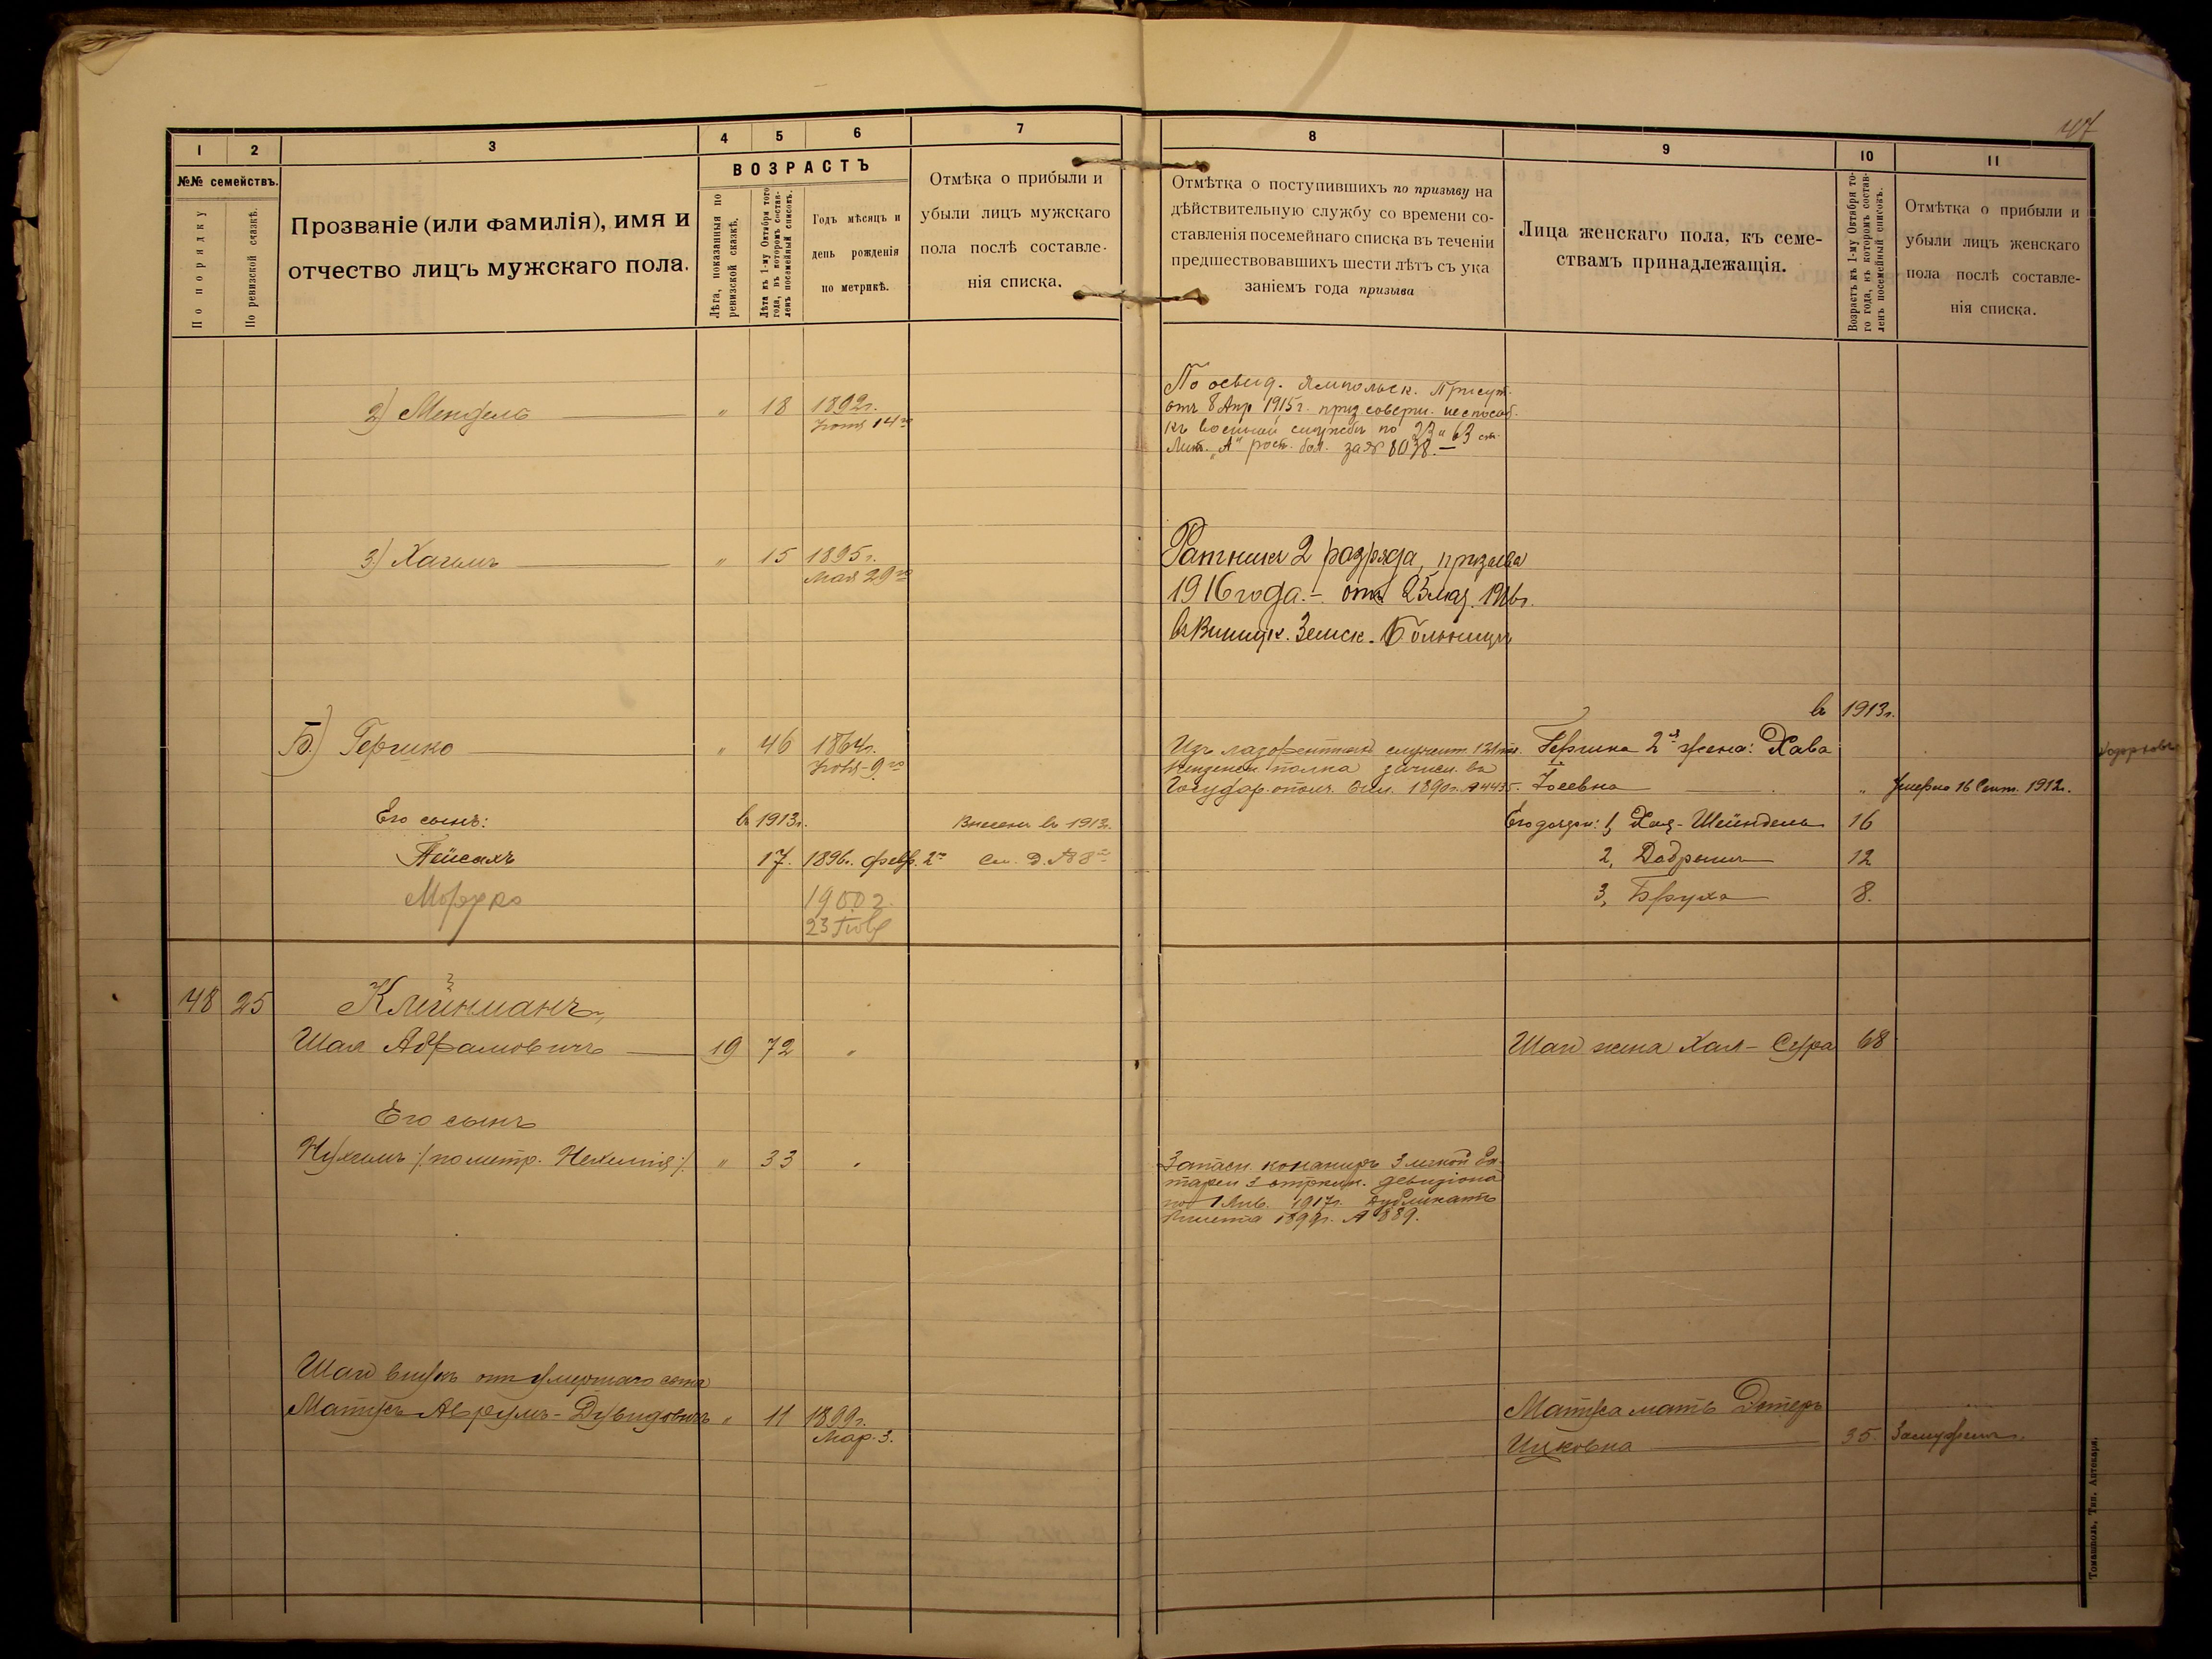 47
1 2 3 4 5 6 7 8 9 10 11
№№ семействъ.
По порядку
По ревизской сказкѣ.
Прозваніе (или фамилія), имя и
отчество лицъ мужскаго пола.
ВОЗРАСТЪ
Лѣта, показанныя по
ревизской сказкѣ.
Лѣта къ 1-му Октября того
года, въ которомъ состав-
ленъ посемейный списокъ.
Годъ мѣсяцъ и
день рожденія
по метрикѣ.
Отмѣка о прибыли и
убыли лицъ мужскаго
пола послѣ составле-
нія списка.
Отмѣтка о поступившихъ по призыву на
дѣйствительную службу со времени со-
ставленія посемейнаго списка въ теченіи
предшествовавшихъ шести лѣтъ съ ука
заніемъ года призыва
Лица женскаго пола, къ семе-
ствамъ принадлежащія.
Возрастъ къ 1-му Октября то-
го года, въ которомъ состав-
ленъ посемейный списокъ.
Отмѣтка о прибыли и
убыли лицъ женскаго
пола послѣ составле-
нія списка.
2) Мендель " 18 1892г.
14го
По освид. Ямпольск. Присут.
отъ 8 Апр 1915г. призн совершн. неспособ.
къ военной службѣ по 23 " 63 ст.
Лит. "А" рост. бол. за № 8038.
3) Хаимъ " 15 1895г.
Мая 29го
Ратникъ 2 разряда, призыва
1916 года. – отъ 25 мая 1916г.
въ Винницк. Земск. Больницѣ
въ 1913г.
Б.) Гершко " 46 1864г.
9го
служит.
полка зачисл. въ
Государ. ополч. 1890г. № 4435.
Гершка 2я жена: Хава
Іосевна "
Умерла 16 Сент. 1912г.
Его сынъ: въ 1913г. Внесенъ въ 1913г.
Пейсахъ 17. 1896г. февр. 2го см. Д. № 8
Мордко 1900г.
23
Его дочери: 1, Хая-Шейндель 16
2, Добрыш 12
3, Бруха 8.
48 25 Клейманъ,
Шая Абрамовичъ 19 72 "
Шаи жена Хая-Сура 68
Его сынъ
Нухимъ /: по метр. Нехемія :/ " 33 "
Запасн. канониръ 3 легкой Ба-
тареи 3 дивизіона
по 1 Янв. 1917г. Дубликатъ
билета 1899г. № 889.
Шаи внукъ отъ умершаго сына
Матусъ Аврумъ-Дувидовичъ " 11 1899г.
Мар. 3.
Матуса мать Эстеръ
Ицковна 35. Замужемъ.
Томашполь, Тип. Аптекаря.